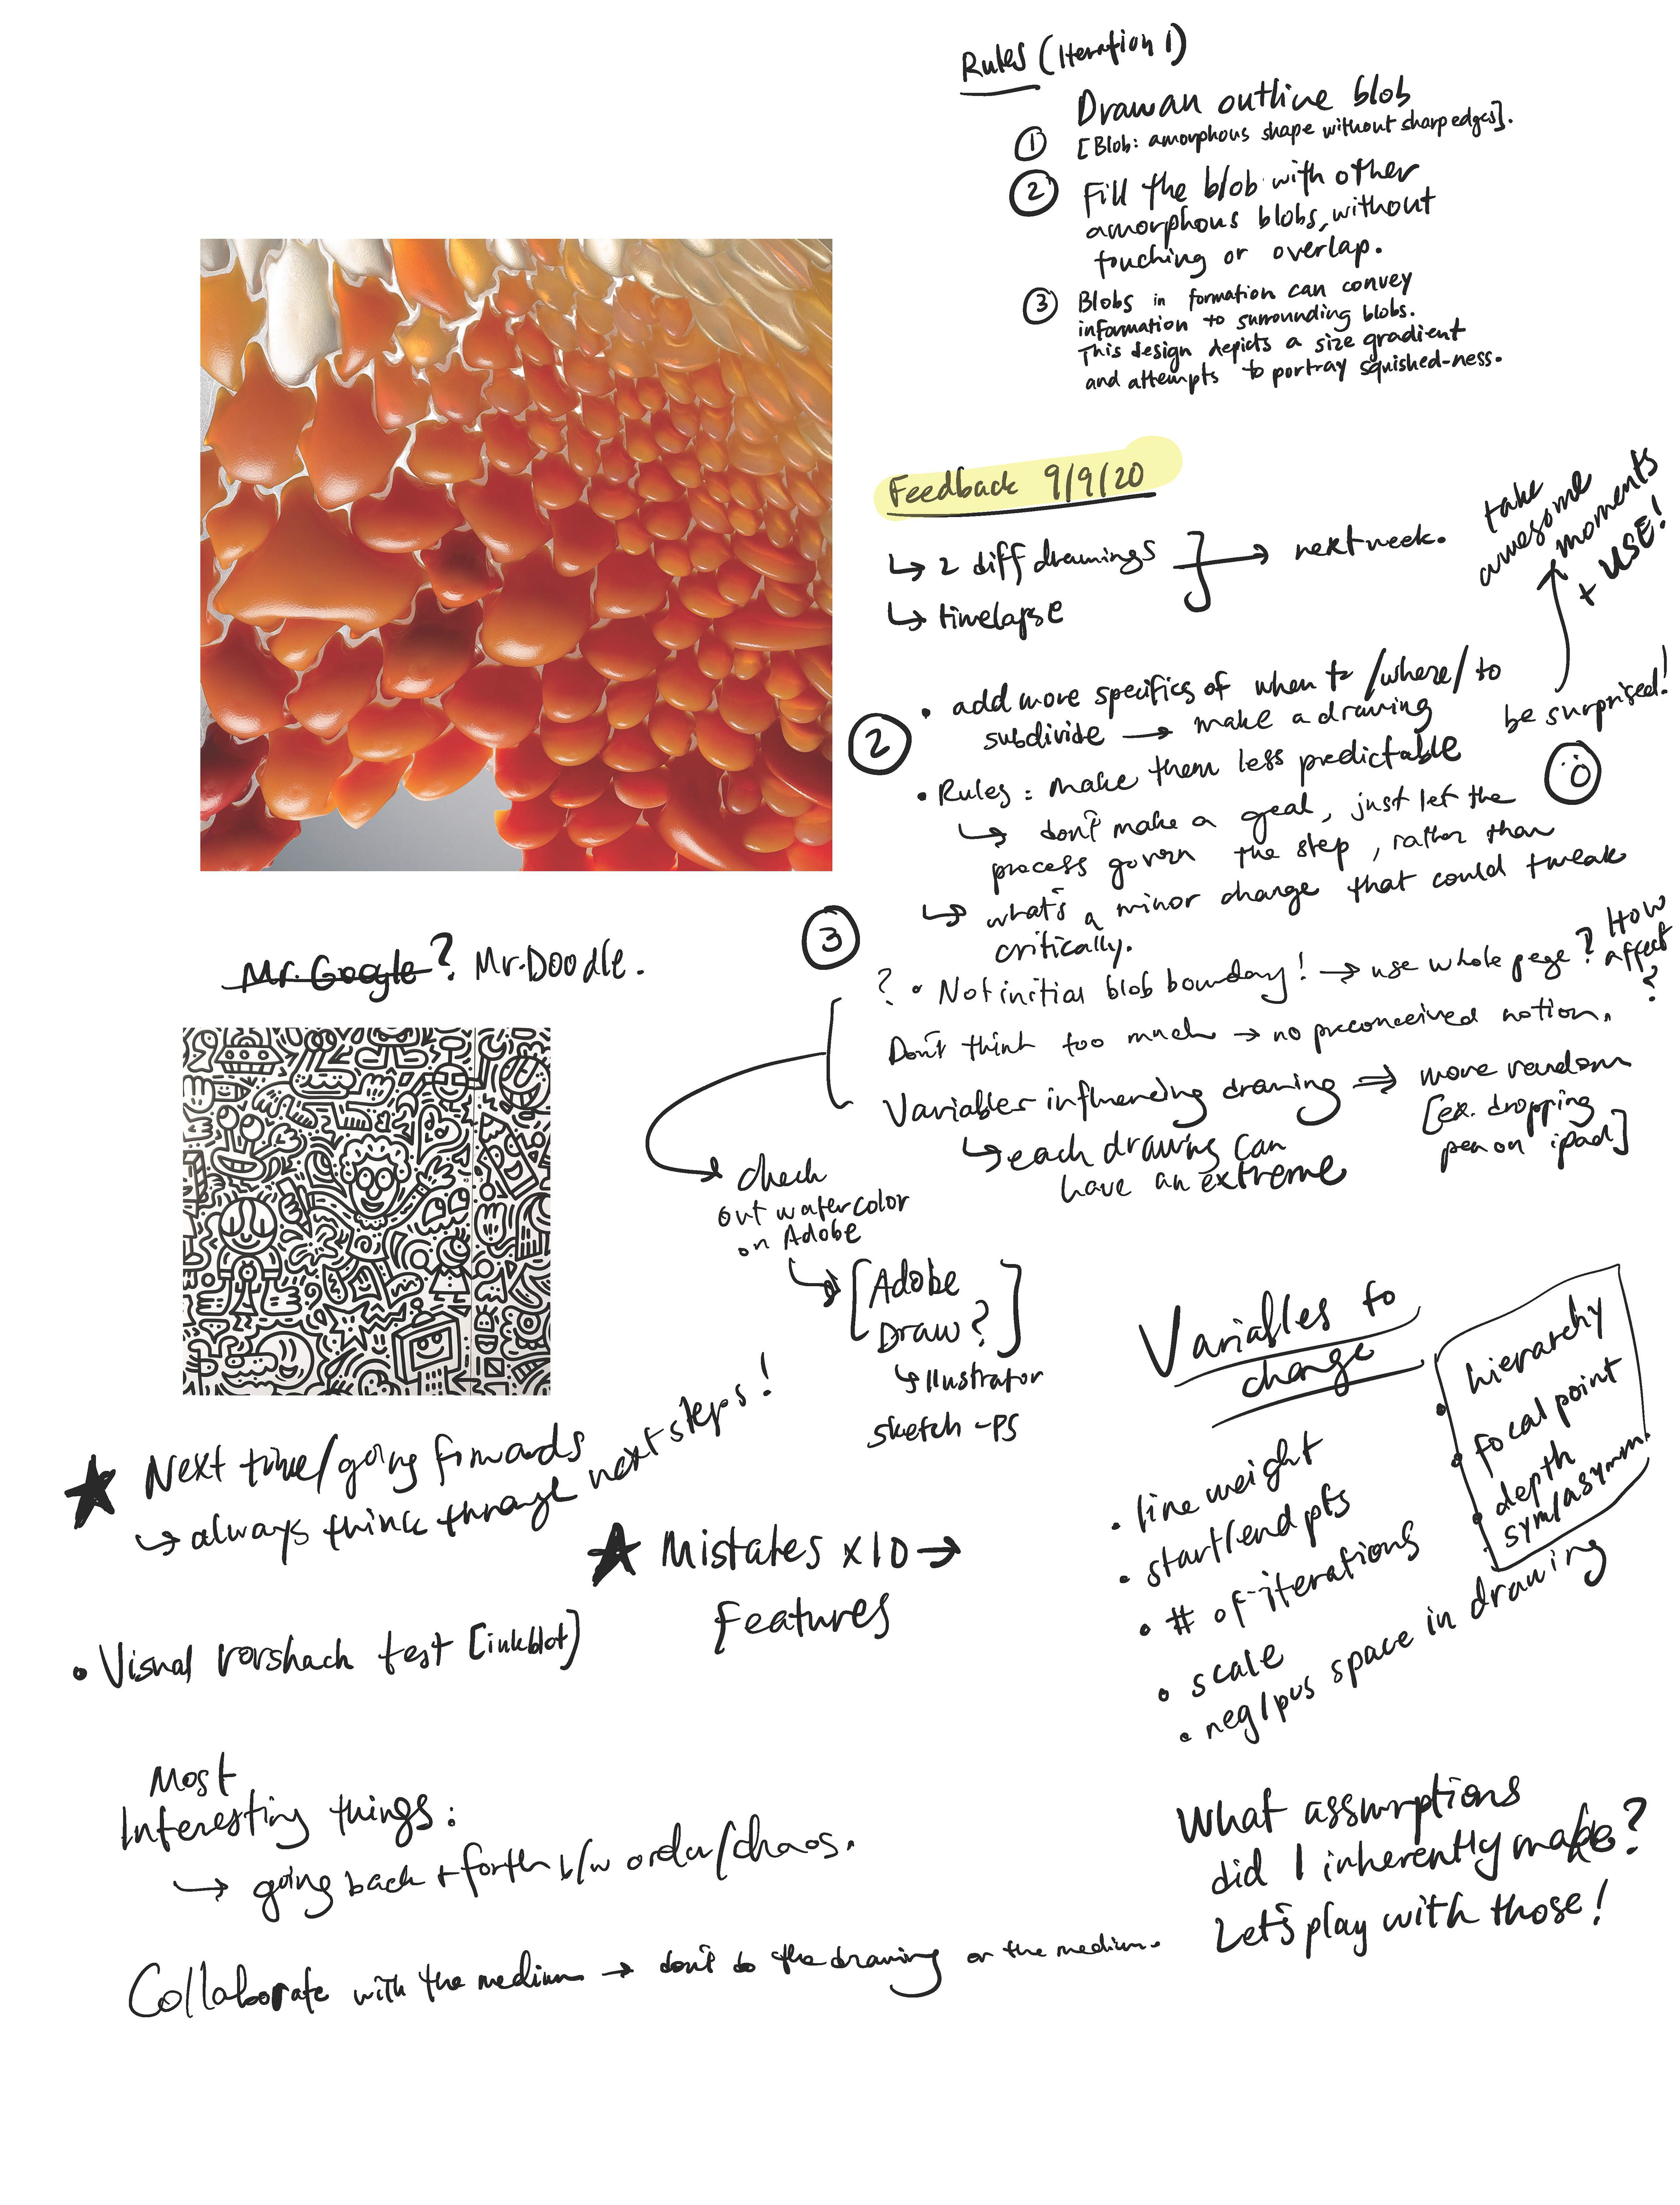 Rules (Iteration 1)
Draw an outline blob
① [Blob: amorphous shape without sharp edges].
② Fill the blob with other
amorphous blobs, without
touching or overlap.
③ Blobs in formation can convey
information to surrounding blobs.
This design depicts a size gradient
and attempts to portray squished-ness.
Feedback 9/9/20
↳ 2 diff drawings
↳ timelapse
→ next week.
take
awesome
moments
+ USE!
be surprised!
②
• add more specifics of when to /where/ to
subdivide → make a drawing
• Rules: make them less predictable
↳ don't make a goal, just let the
process govern the step, rather than
↳ what's a minor change that could tweak
critically.
③
? • Not initial blob boundary! → use whole page? How
affect
?
Don't think too much → no preconceived notion.
Variables influencing drawing ⇒ more random
[ex. dropping
pen on ipad]
↳ each drawing can
have an extreme
Mr. Google? Mr. Doodle.
check
out watercolor
on Adobe
↳ [Adobe
Draw?]
↳ Illustrator
sketch - PS
Variables to
change
• line weight
• start/end pts
• # of iterations
• scale
• neg/pos space in drawing
• hierarchy
• focal point
• depth
• sym/asymm.
★ Next time/going forwards
↳ always think through next steps!
★ Mistakes x10 →
Features
• Visual rorshach test [inkblot]
Most
Interesting things:
→ going back + forth b/w order/chaos.
Collaborate with the medium → don't do the drawing or the medium.
What assumptions
did I inherently make?
Let's play with those!